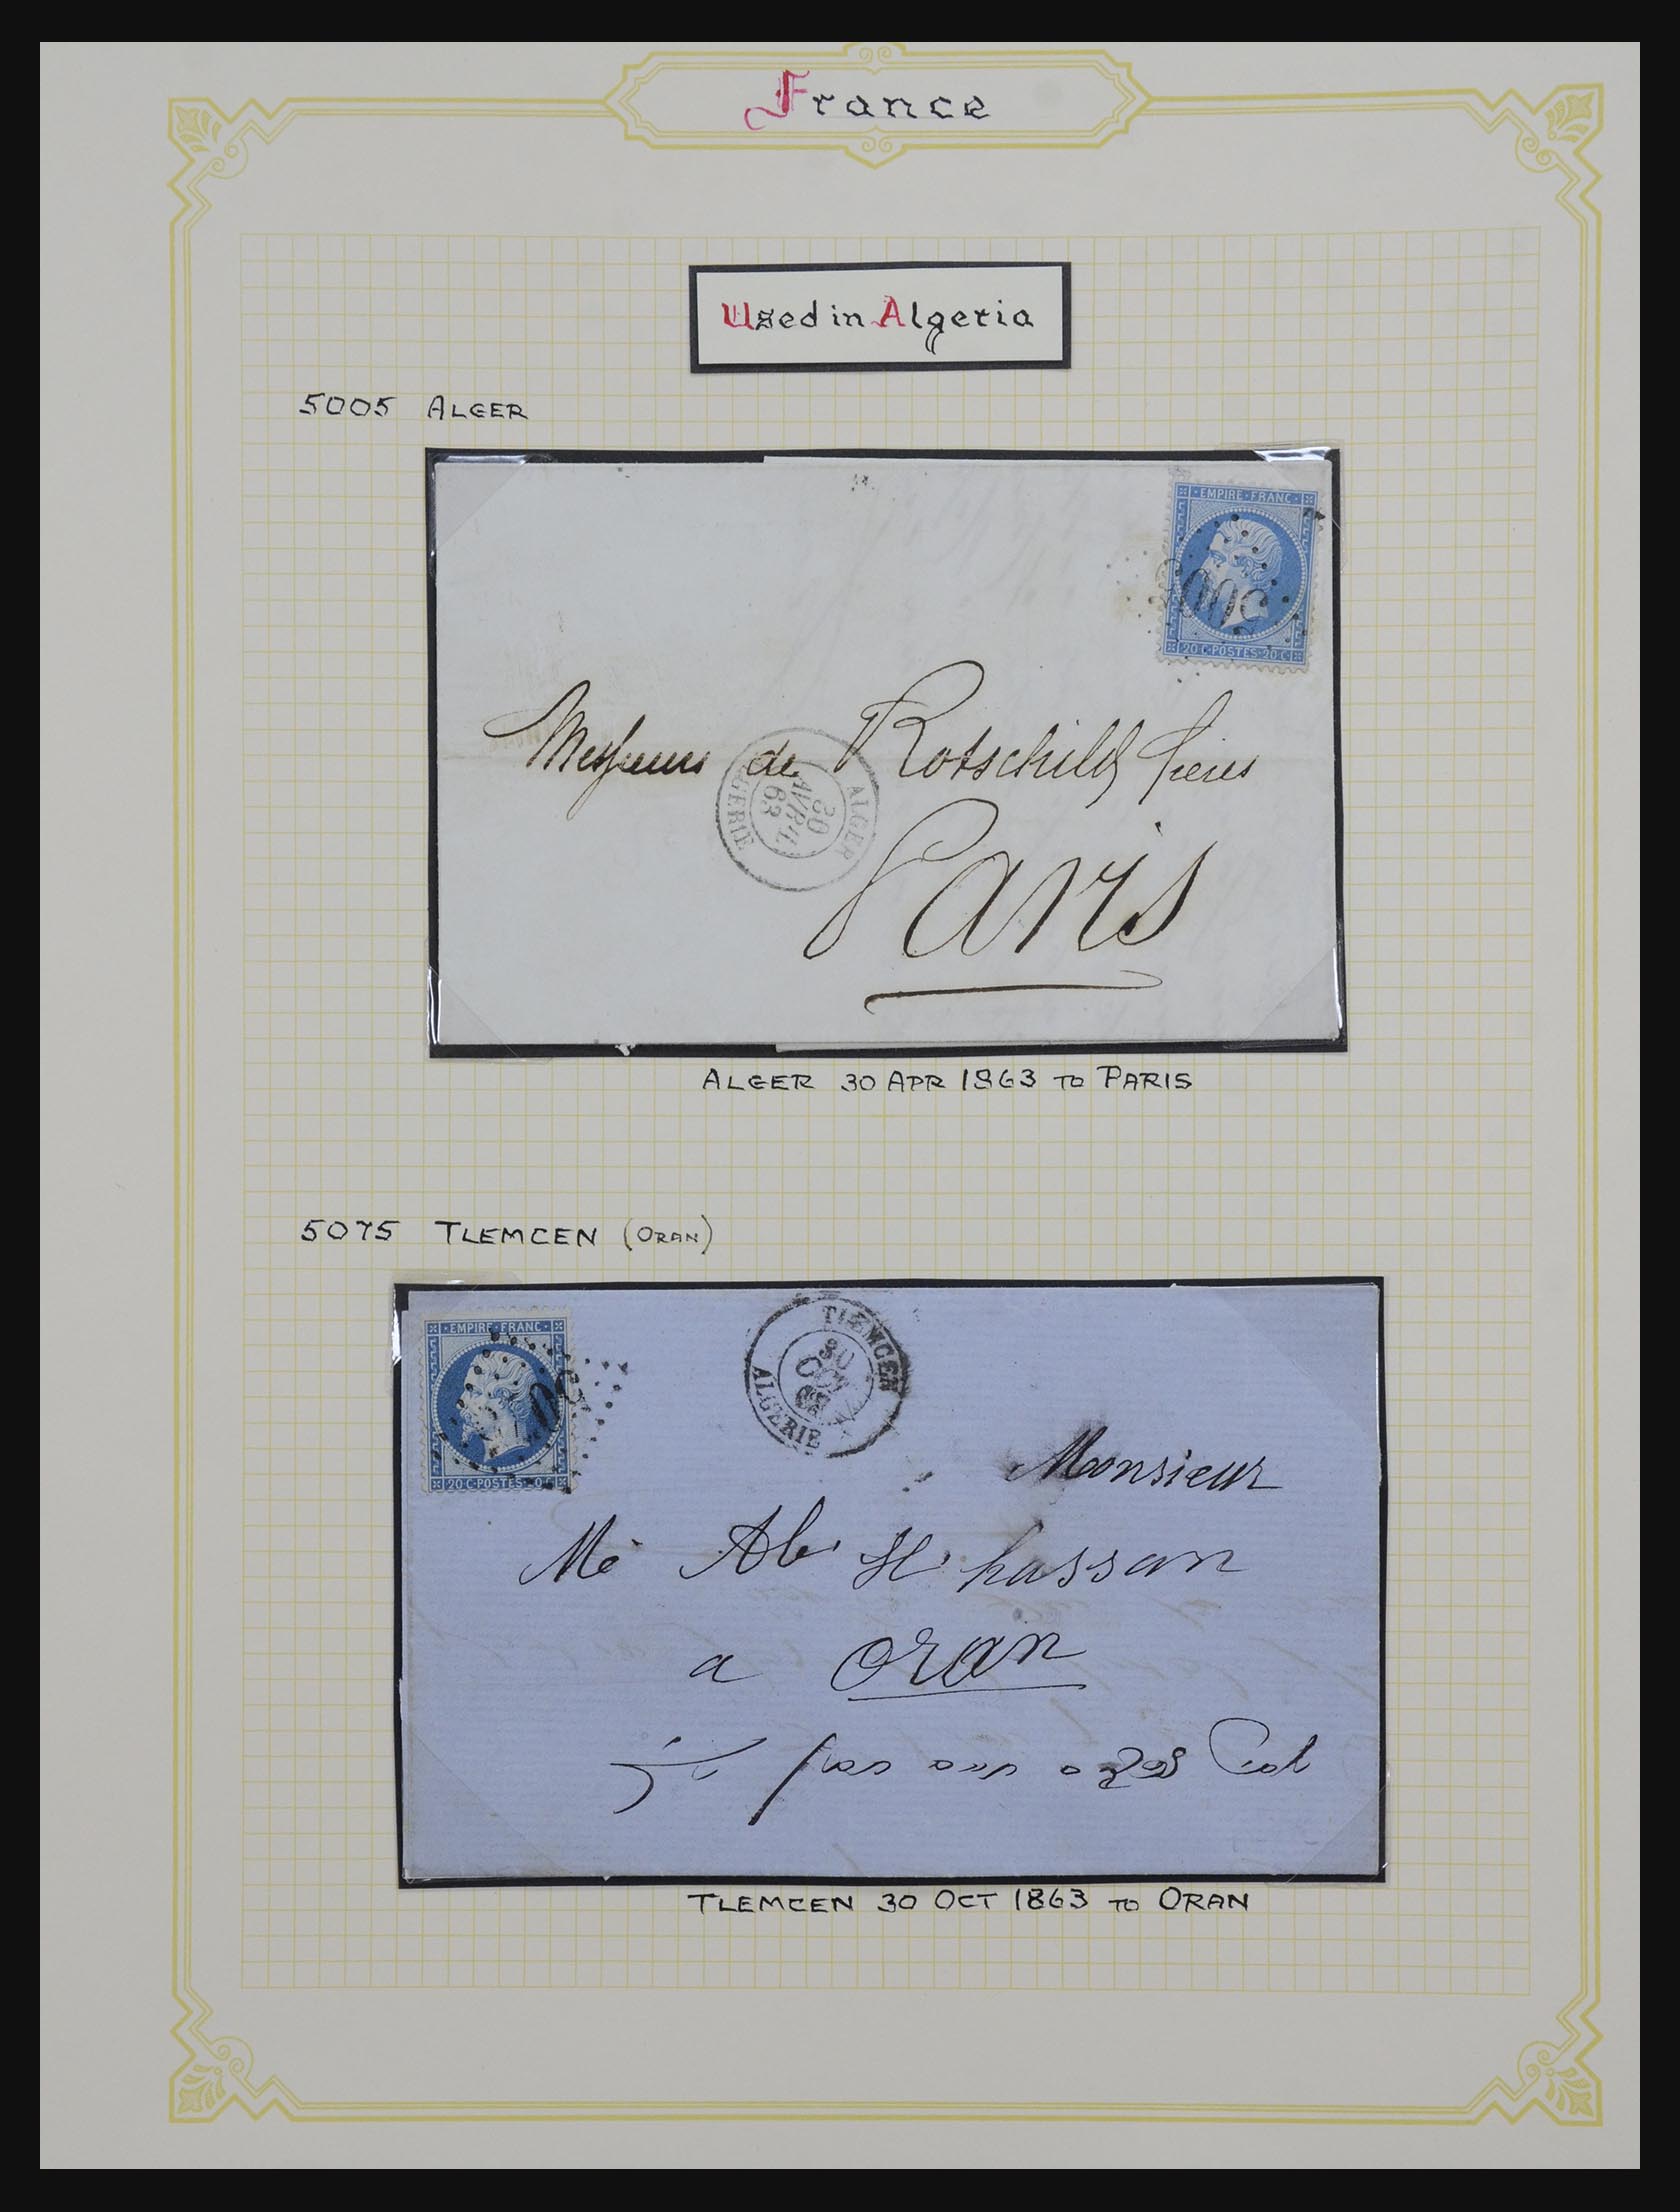 France
Used in Algeria
5005 ALGER
EMPIRE FRANC
5005
20 C POSTES 20 C
Messieurs de Rotschild frères
ALGER
30
AVRIL
63
ALGERIE
Paris
ALGER 30 APR 1863 TO PARIS
5075 TLEMCEN (ORAN)
EMPIRE FRANC
20 C POSTES 20 C
TLEMCEN
30
OCT
63
ALGERIE
Monsieur
hassan
a oran
TLEMCEN 30 OCT 1863 TO ORAN